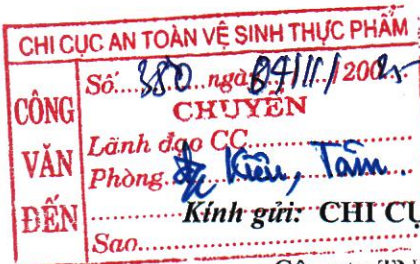 CHI CỤC AN TOÀN VỆ SINH THỰC PHẨM
CÔNG VĂN ĐẾN
Số 380 ngà 04/11/200
CHUYỂN
Lãnh đạo CC
Phòng Kiều, Tâm.
Kính gửi: CHI CỤ
Sao